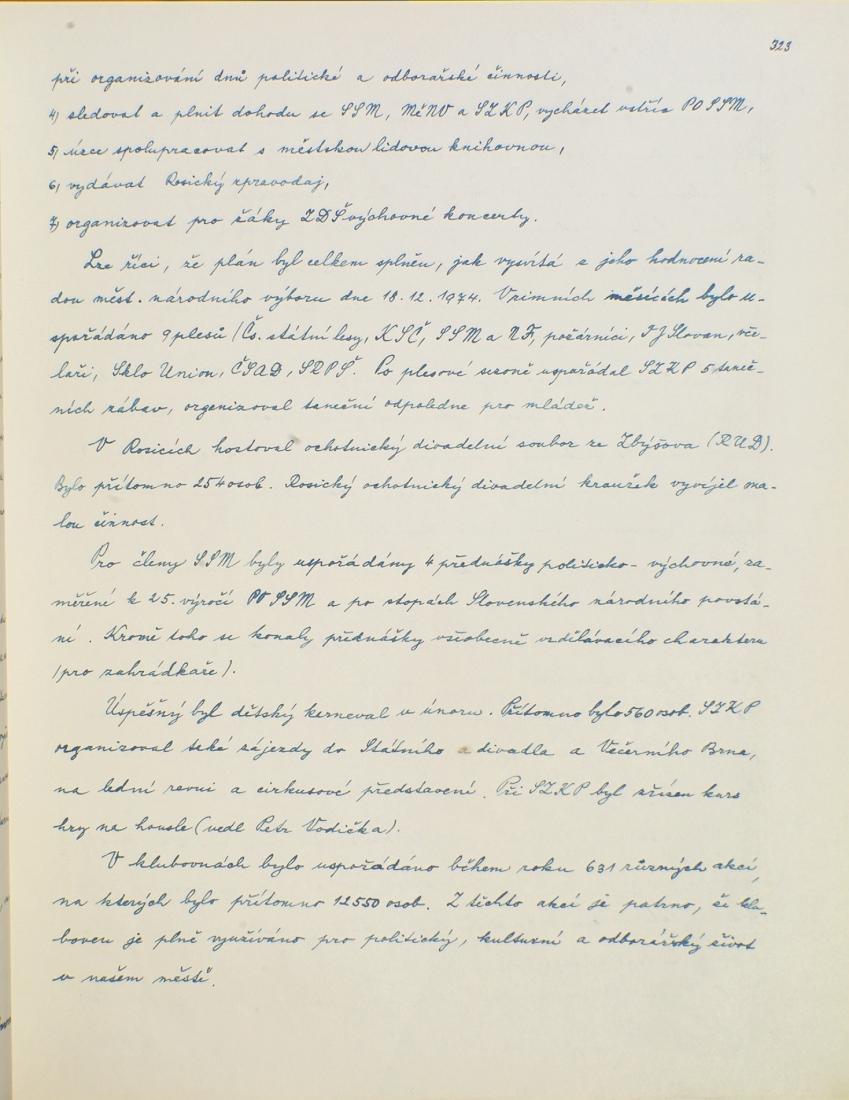 323
při organizování dnů politické a odborářské činnosti,
4) sledovat a plnit dohodu se SSM, MěNV a SZKP, vycházet vstříc PO SSM,
5) úzce spolupracovat s městskou lidovou knihovnou,
6) vydávat Rosický zpravodaj,
7) organizovat pro žáky ZDŠ výchovné koncerty.
Lze říci, že plán byl celkem splněn, jak vysvítá z jeho hodnocení ra-
dou měst. národního výboru dne 18.12.1974. V zimních měsících bylo u-
spořádáno 9 plesů (Čs. státní lesy, KSČ, SSM a NF, požárníci, TJ Slovan, vče-
laři, Sklo Union, ČSAD, SRPŠ. Po plesové sezoně uspořádal SZKP 5 taneč-
ních zábav, organizoval taneční odpoledne pro mládež.
V Rosicích hostoval ochotnický divadelní soubor ze Zbýšova (RUD).
Bylo přítomno 254 osob. Rosický ochotnický divadelní kroužek vyvíjel ma-
lou činnost.
Pro členy SSM byly uspořádány 4 přednášky politicko-výchovné, za-
měřené k 25. výročí PO SSM a po stopách Slovenského národního povstá-
ní. Kromě toho se konaly přednášky všeobecně vzdělávacího charakteru
(pro zahrádkaře).
Úspěšný byl dětský karneval v únoru. Přítomno bylo 560 osob. SZKP
organizoval také zájezdy do Státního divadla a Večerního Brna,
na lední revui a cirkusové představení. Při SZKP byl zřízen kurs
hry na housle (vedl Petr Vodička).
V klubovnách bylo uspořádáno během roku 631 různých akcí,
na kterých bylo přítomno 12550 osob. Z těchto akcí je patrno, že klu-
boven je plně využíváno pro politický, kulturní a odborářský život
v našem městě.